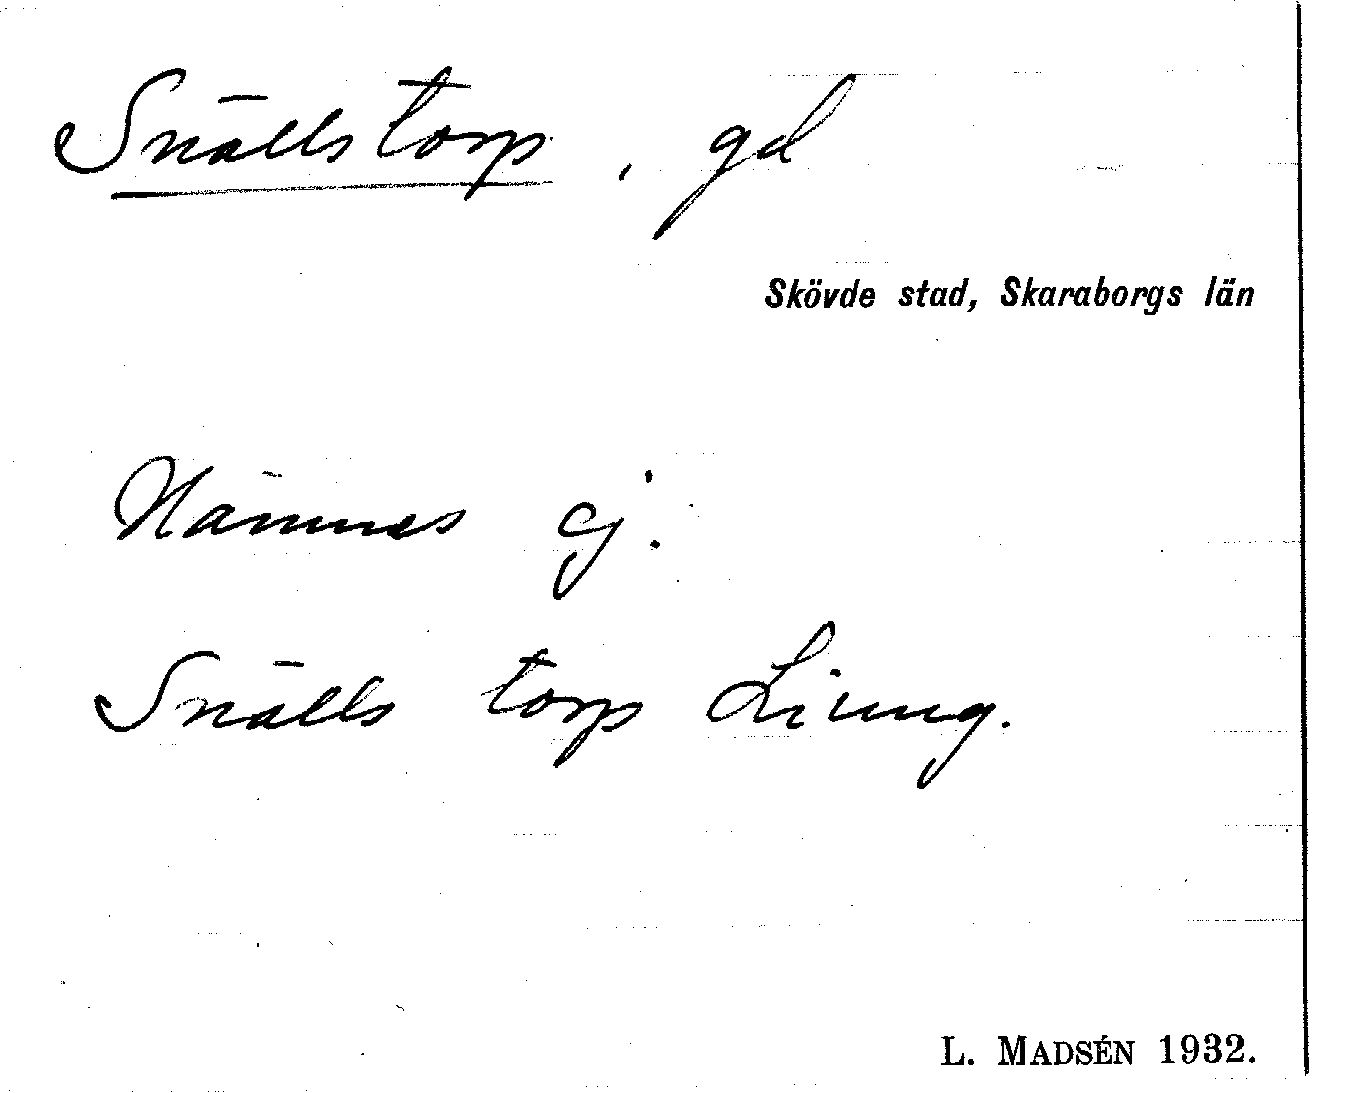 Snällstorp, gd
Skövde stad, Skaraborgs län
Nämnes ej.
Snälls torp Liung.
L. MADSÉN 1932.